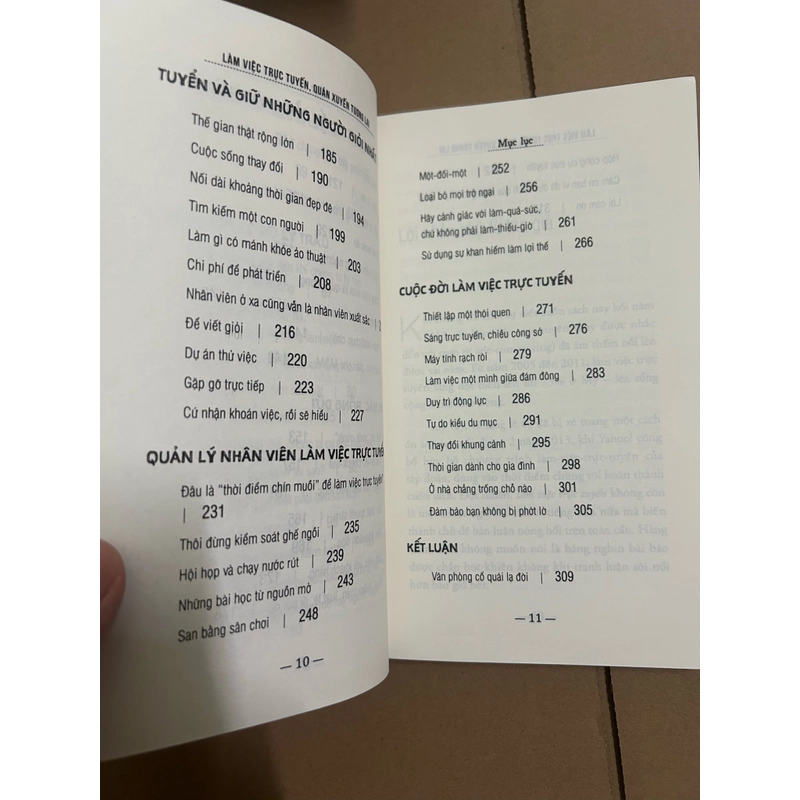 LÀM VIỆC TRỰC TUYẾN, QUÁN XUYẾN TƯƠNG LAI
TUYỂN VÀ GIỮ NHỮNG NGƯỜI GIỎI NHẤT
Thế gian thật rộng lớn | 185
Cuộc sống thay đổi | 190
Nối dài khoảng thời gian đẹp đẽ | 194
Tìm kiếm một con người | 199
Làm gì có mánh khóe ảo thuật | 203
Chi phí để phát triển | 208
Nhân viên ở xa cũng vẫn là nhân viên xuất sắc | 2
Để viết giỏi | 216
Dự án thử việc | 220
Gặp gỡ trực tiếp | 223
Cứ nhận khoán việc, rồi sẽ hiểu | 227
QUẢN LÝ NHÂN VIÊN LÀM VIỆC TRỰC TUYẾN
Đâu là "thời điểm chín muồi" để làm việc trực tuyến?
| 231
Thôi đừng kiểm soát ghế ngồi | 235
Hội họp và chạy nước rút | 239
Những bài học từ nguồn mở | 243
San bằng sân chơi | 248
— 10 —
Mục lục
Một-đối-một | 252
Loại bỏ mọi trở ngại | 256
Hãy cảnh giác với làm-quá-sức,
chứ không phải làm-thiếu-giờ | 261
Sử dụng sự khan hiếm làm lợi thế | 266
CUỘC ĐỜI LÀM VIỆC TRỰC TUYẾN
Thiết lập một thói quen | 271
Sáng trực tuyến, chiều công sở | 276
Máy tính rạch ròi | 279
Làm việc một mình giữa đám đông | 283
Duy trì động lực | 286
Tự do kiểu du mục | 291
Thay đổi khung cảnh | 295
Thời gian dành cho gia đình | 298
Ở nhà chẳng trống chỗ nào | 301
Đảm bảo bạn không bị phớt lờ | 305
KẾT LUẬN
Văn phòng cổ quái lạ đời | 309
— 11 —